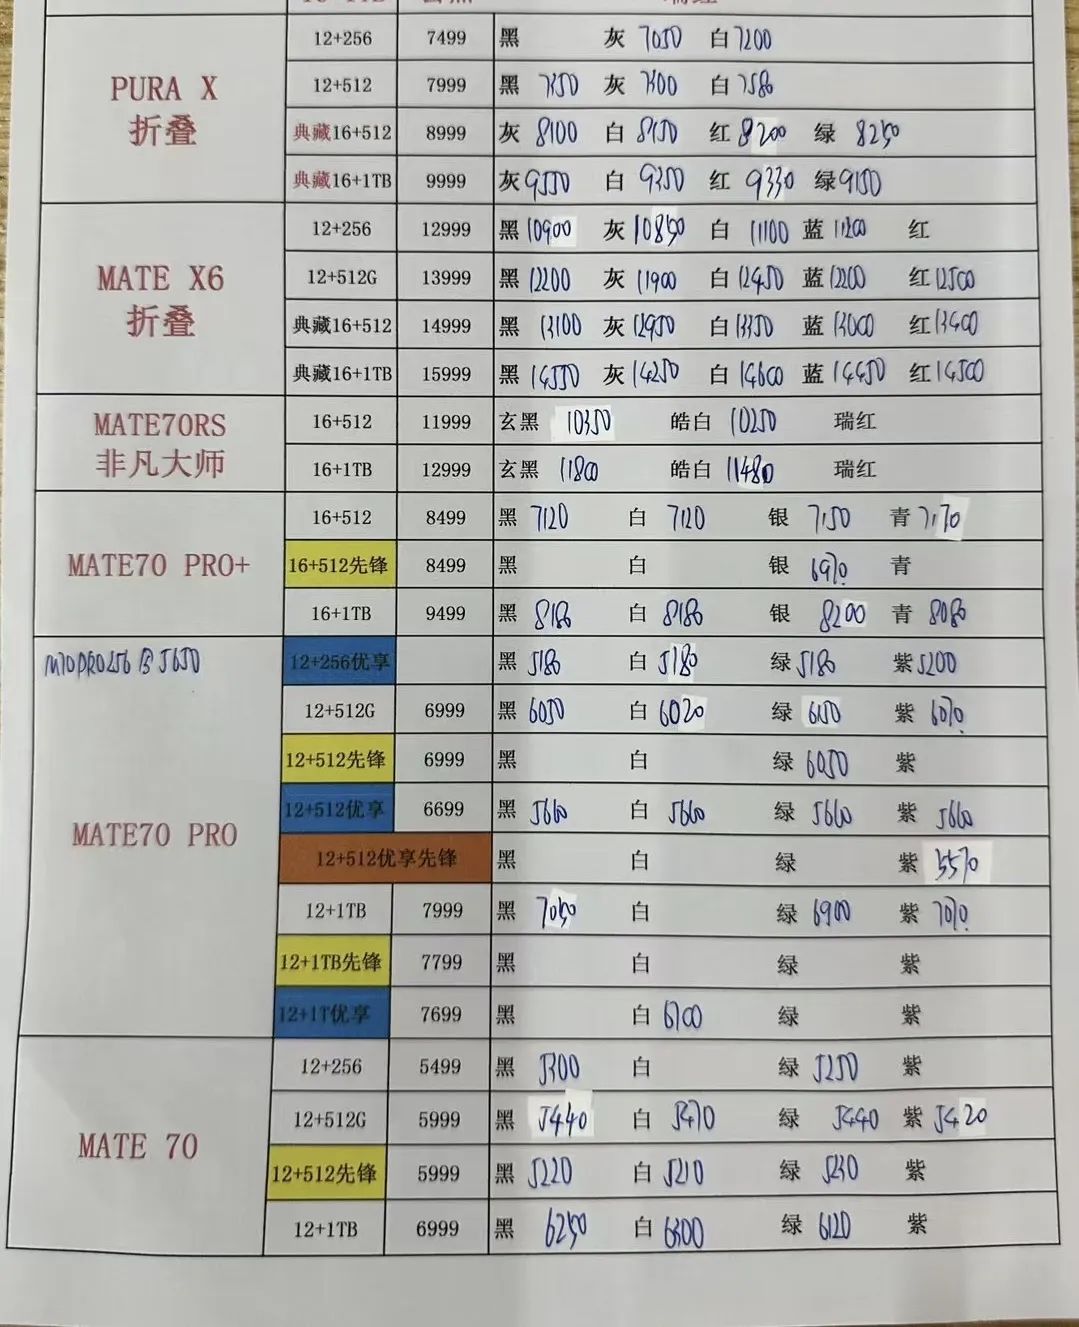 PURA X 折叠
12+256 7499 黑 灰 7050 白 7200
12+512 7999 黑 7350 灰 7300 白 7580
典藏16+512 8999 灰 8100 白 8150 红 8200 绿 8250
典藏16+1TB 9999 灰 9550 白 9350 红 9330 绿 9150
MATE X6 折叠
12+256 12999 黑 10900 灰 10850 白 11100 蓝 11200 红
12+512G 13999 黑 12200 灰 11900 白 12450 蓝 12200 红 12500
典藏16+512 14999 黑 13100 灰 12950 白 13350 蓝 13000 红 13400
典藏16+1TB 15999 黑 14550 灰 14250 白 14600 蓝 14450 红 14500
MATE70RS 非凡大师
16+512 11999 玄黑 10350 皓白 10250 瑞红
16+1TB 12999 玄黑 11800 皓白 11480 瑞红
MATE70 PRO+
16+512 8499 黑 7120 白 7120 银 7150 青 7170
16+512先锋 8499 黑 白 银 6970 青
16+1TB 9499 黑 8180 白 8180 银 8200 青 8080
M70PRO256 白 5650
MATE70 PRO
12+256优享 黑 5180 白 5180 绿 5180 紫 5200
12+512G 6999 黑 6050 白 6020 绿 6150 紫 6070
12+512先锋 6999 黑 白 绿 6050 紫
12+512优享 6699 黑 5660 白 5660 绿 5660 紫 5660
12+512优享先锋 黑 白 绿 紫 5570
12+1TB 7999 黑 7050 白 绿 6900 紫 7070
12+1TB先锋 7799 黑 白 绿 紫
12+1T优享 7699 黑 白 6700 绿 紫
MATE 70
12+256 5499 黑 5300 白 绿 5250 紫
12+512G 5999 黑 5440 白 5470 绿 5440 紫 5420
12+512先锋 5999 黑 5220 白 5210 绿 5230 紫
12+1TB 6999 黑 6250 白 6300 绿 6120 紫